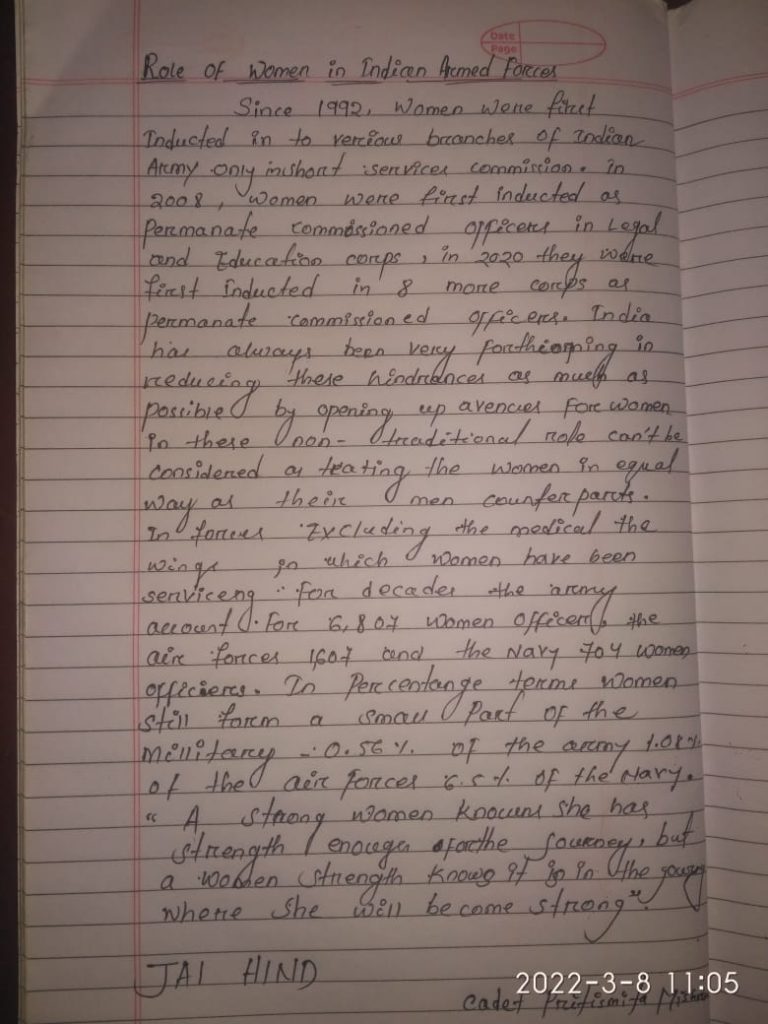 Date
Page
Role of Women in Indian Armed Forces
Since 1992, Women were first
Inducted in to various branches of Indian
Army only inshort services commission. in
2008, women were first inducted as
Permanate commissioned officers in Legal
and Education corps, in 2020 they were
first Inducted in 8 more corps as
permanate commissioned officers. India
has always been very forthcoming in
reducing these hindrances as much as
possible by opening up avenues for women
in these non-traditional role can't be
considered as teating the women in equal
way as their men counter parts.
In forces Excluding the medical the
wings in which women have been
serviceng for decades the army
account for 6,807 women officers, the
air forces 1,607 and the Navy 704 women
officiers. In Percentange terms women
still form a small part of the
Millitary - 0.56% of the army 1.08%
of the air forces 6.5% of the Navy.
" A strong women knowns she has
strength enough forthe journey, but
a women strength knows it is in the
where she will become strong".
JAI HIND
2022-3-8 11:05
Cadet Pritismita